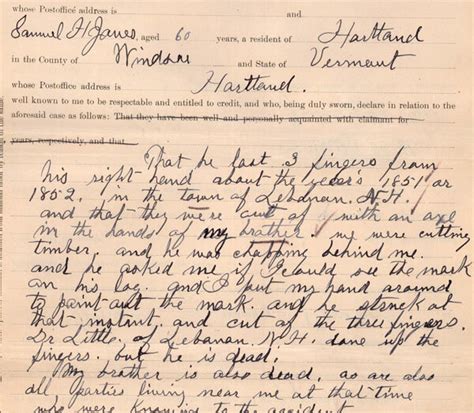 whose Postoffice address is and
Samuel H Janes, aged 60 years, a resident of Hartland
in the County of Windsor and State of Vermont
whose Postoffice address is Hartland.
well known to me to be respectable and entitled to credit, and who, being duly sworn, declare in relation to the
aforesaid case as follows: That they have been well and personally acquainted with claimant for
years, respectively, and that
That he lost 3 fingers from
his right hand about the year's 1851 or
1852. in the town of Lebanon, N.H.
and that they were cut of with an axe
in the hands of my brother. we were cutting
timber, and he was chopping behind me.
and he asked me if I could see the mark
on his log. and I put my hand around
to point out the mark. and he struck at
that instant, and cut of the three fingers.
Dr Little, of Lebanon, N.H. done up the
fingers, but he is dead.
My brother is also dead, as are also
all parties living near me at that time
who were knowing to the accident